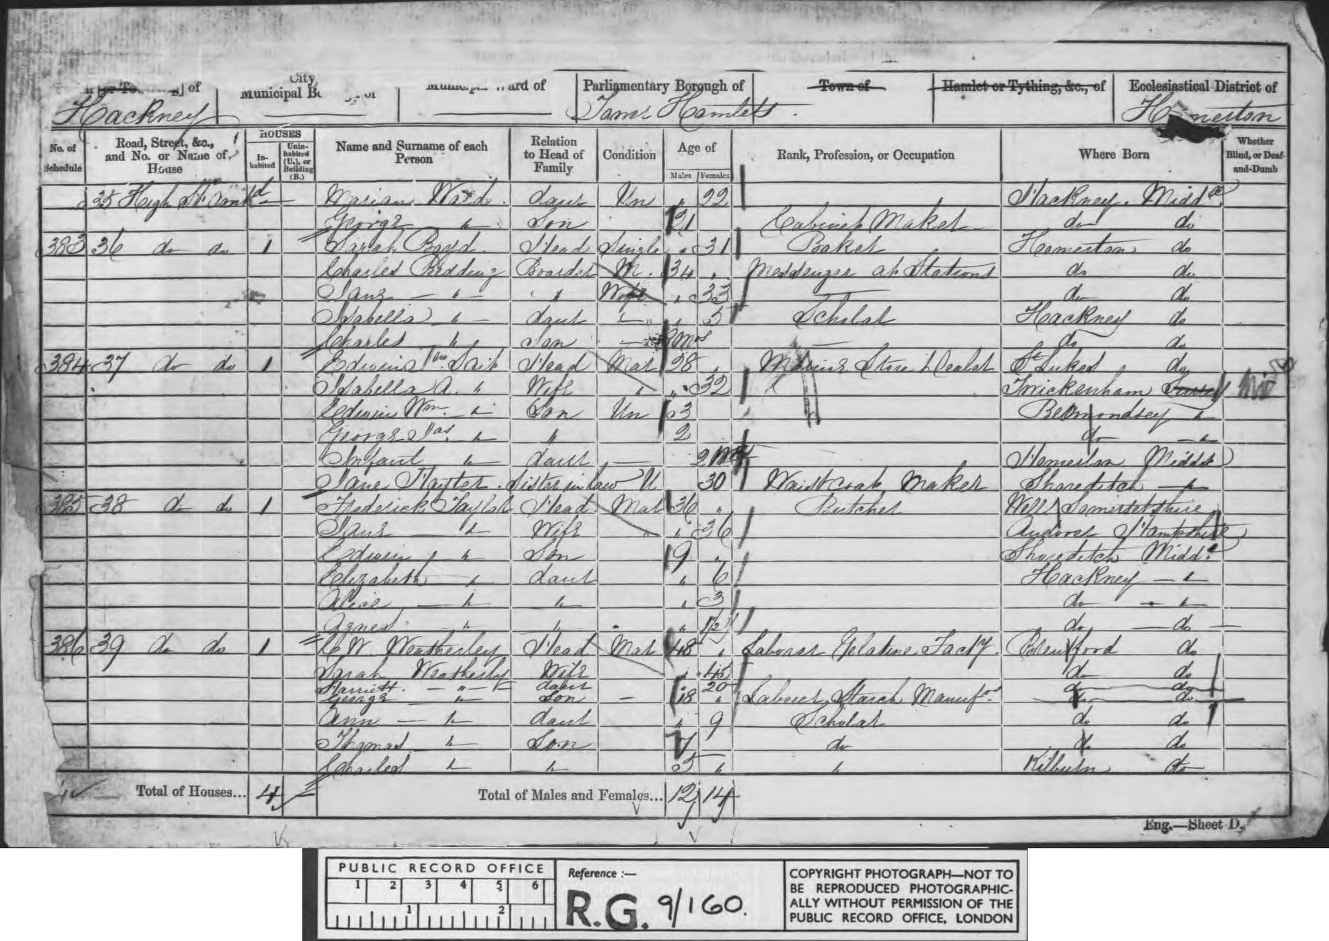 City
Municipal Ward of
Parliamentary Borough of
Town of
Hamlet or Tything, &c., of
Ecclesiastical District of
Hackney
Hamlets
Homerton
No. of Schedule
Road, Street, &c., and No. or Name of House
HOUSES
Inhabited
Uninhabited (U.), or Building (B.)
Name and Surname of each Person
Relation to Head of Family
Condition
Age of
Males
Females
Rank, Profession, or Occupation
Where Born
Whether Blind, or Deaf-and-Dumb
35 High St Marian daur Un 22 Hackney Midd
George " Son 21 Cabinet Maker do do
383 36 do do 1 Sarah Head Single 31 Baker Homerton do
Charles Redding Boarder M. 34 Messenger at Stations do do
Jane " " Wife 33 do do
Isabella " daut " 5 Scholar Hackney do
Charles " Son do do
384 37 do do 1 Edwin Wm Head Mar 28 Marine Store Dealer St Lukes do
Isabella A. " Wife " 32 Twickenham
Edwin Wm. " Son Un 3 Bermondsey "
George Jas " " 2 do "
Infant " daut 2 Homerton Middx
Jane Hayter Sister in law U 30 Waistcoat Maker Shoreditch "
385 38 do do 1 Frederick Taylor Head Mar 36 Butcher Somersetshire
Jane " Wife 36 Andover Hampshire
Edwin " Son 9 Shoreditch Midd
Elizabeth " daut 6 Hackney "
Alice " " 3 do "
Agnes " " do do
386 39 do do 1 C W Weatherley Head Mar 48 Labourer Gelatine Facty. Brentford do
Sarah Weatherley Wife 45 do do
Harriett " daur 20 do do
George " Son 18 Labourer Starch Manuf do do
Ann " daut 9 Scholar do do
Thomas " Son 7 do do do
Charles " " 5 " Kilburn do
Total of Houses... 4
Total of Males and Females... 12 14
Eng.—Sheet D.
PUBLIC RECORD OFFICE
1 2 3 4 5 6
1 2
Reference :—
R.G. 9/160.
COPYRIGHT PHOTOGRAPH—NOT TO
BE REPRODUCED PHOTOGRAPHIC-
ALLY WITHOUT PERMISSION OF THE
PUBLIC RECORD OFFICE, LONDON